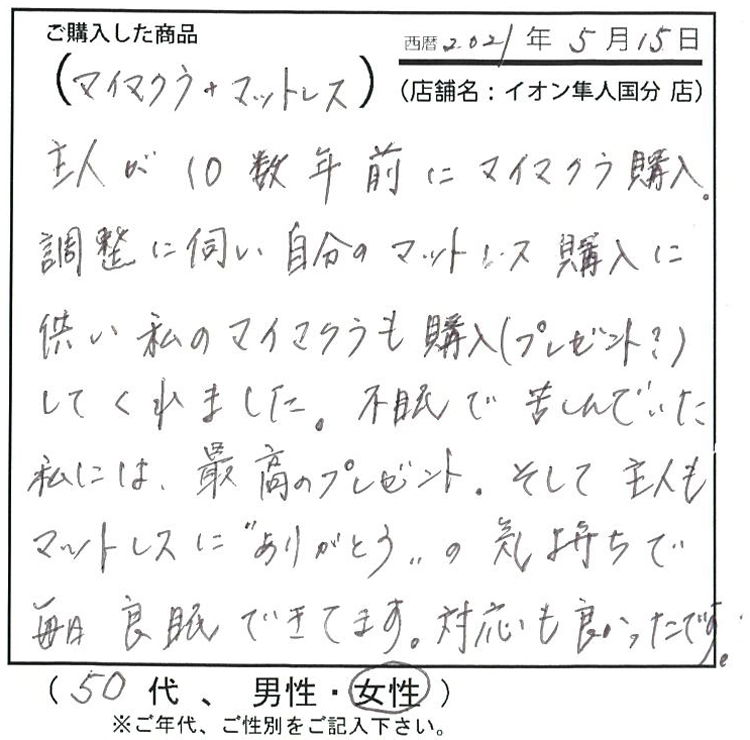 ご購入した商品
西暦 2021年 5月15日
(マイマクラ+マットレス)
(店舗名：イオン隼人国分 店)
主人が10数年前にマイマクラ購入。
調整に伺い自分のマットレス購入に
供い私のマイマクラも購入(プレゼント？)
してくれました。不眠で苦しんでいた
私には、最高のプレゼント。そして主人も
マットレスに"ありがとう"の気持ちで
毎日良眠できてます。対応も良かったです。
(50代、男性・女性)
※ご年代、ご性別をご記入下さい。